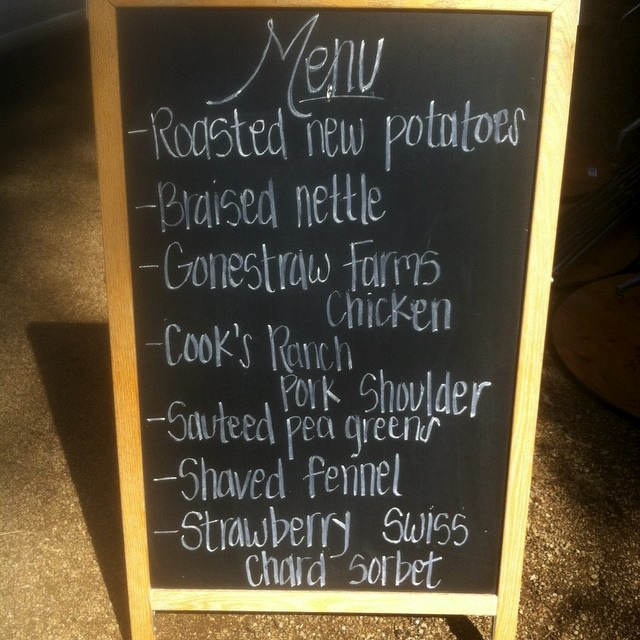 Menu
-Roasted new potatoes
-Braised nettle
-Gonestraw Farms
Chicken
-Cook's Ranch
Pork Shoulder
-Sauteed pea greens
-Shaved fennel
-Strawberry Swiss
Chard Sorbet